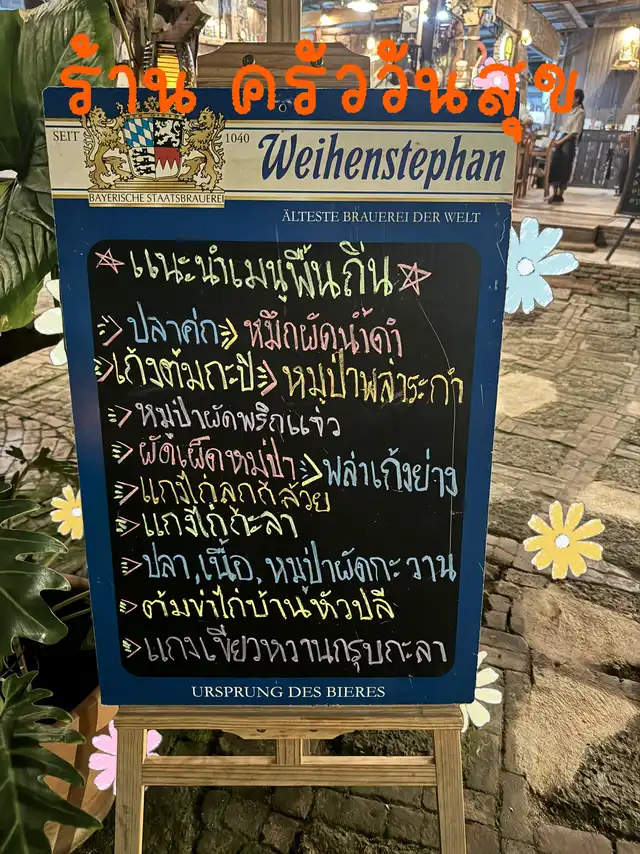 ร้าน ครัววันสุข
SEIT 1040
Weihenstephan
BAYERISCHE STAATSBRAUEREI
ÄLTESTE BRAUEREI DER WELT
แนะนำเมนูพื้นถิ่น
ปลาค่ก หมึกผัดน้ำดำ
เก้งต้มกะปิ หมูป่าพล่าระกำ
หมูป่าผัดพริกแจ่ว
ผัดเผ็ดหมูป่า พล่าเก้งย่าง
แกงไก่ลูกกล้วย
แกงไก่กะลา
ปลา, เนื้อ, หมูป่าผัดกะวาน
ต้มข่าไก่บ้านหัวปลี
แกงเขียวหวานกรุบกะลา
URSPRUNG DES BIERES